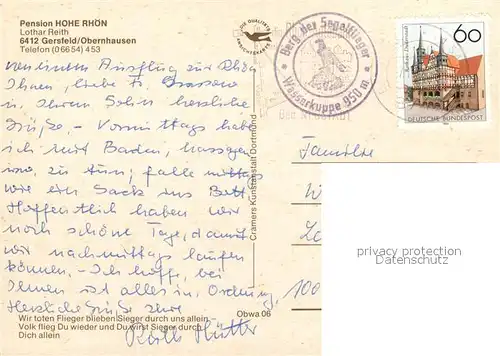 Pension HOHE RHÖN
Lothar Reith
6412 Gersfeld/Obernhausen
Telefon (0 66 54) 4 53
von einem Ausflug zur Rhön
Ihnen, liebe Fr.
u. Ihrem Sohn herzliche
Grüße. - Vormittags habe
ich mit Baden, Massagen
usw. zu tun, falle mittags
wie ein Sack ins Bett
Hoffentlich haben wir
noch schöne Tage, damit
wir nachmittags laufen
können. - Ich hoffe, bei
Ihnen ist alles in Ordnung,
Herzliche Grüße Ihre
Wir toten Flieger blieben Sieger durch uns allein
Volk flieg Du wieder und Du wirst Sieger durch
Dich allein
Obwa 06
Cramers Kunstanstalt Dortmund
Berg der Segelflieger
Wasserkuppe 950 m
60
DEUTSCHE BUNDESPOST
Familie
100
privacy protection
Datenschutz